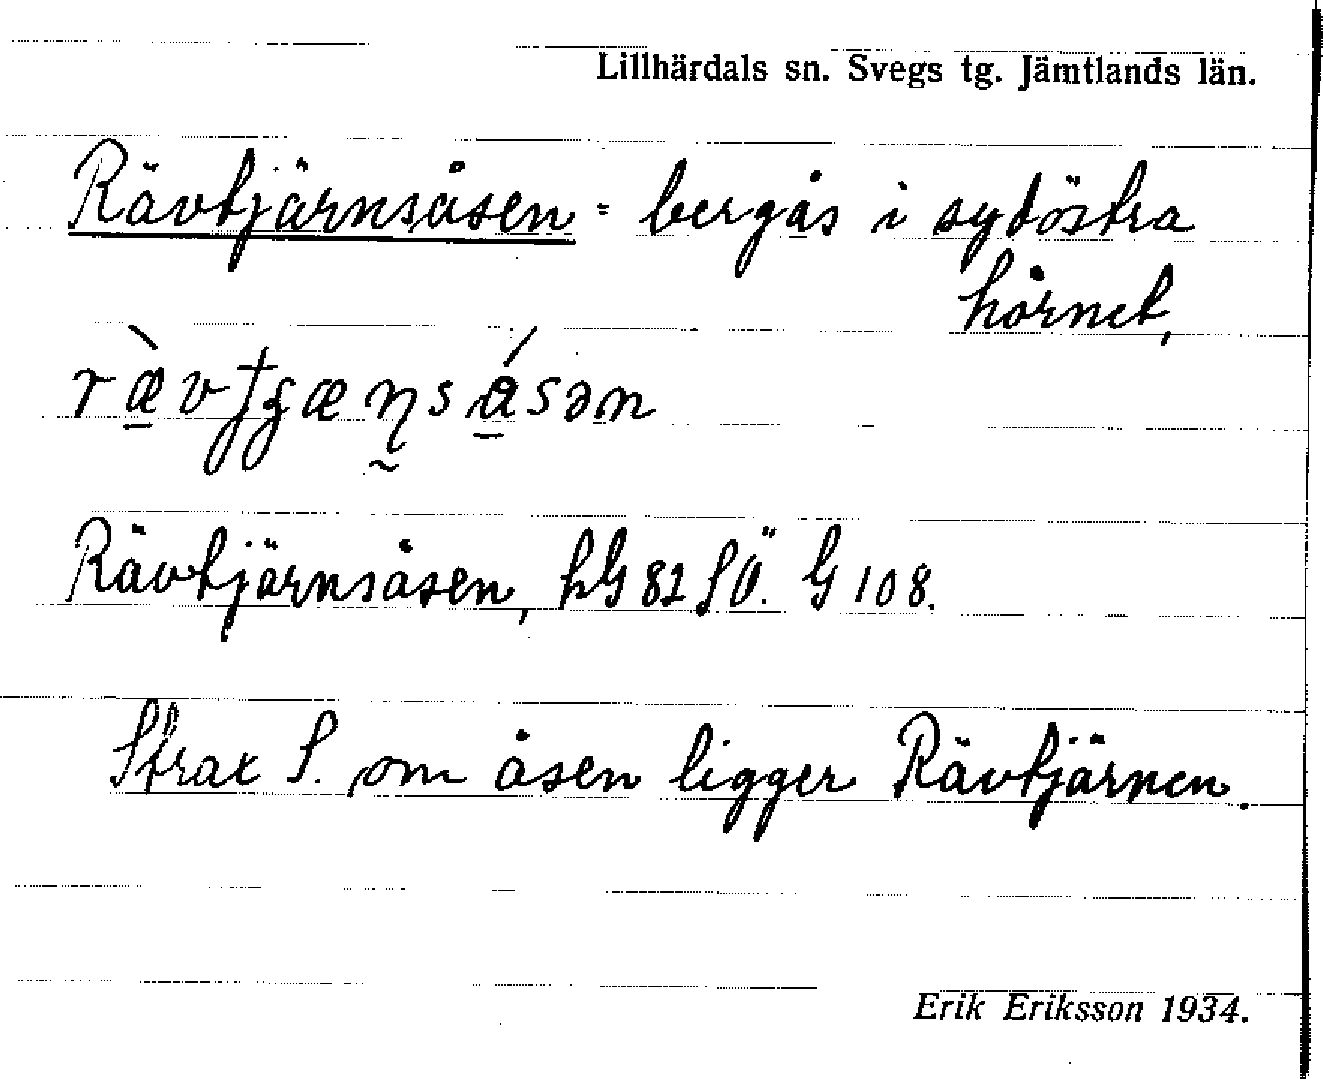 Lillhärdals sn. Svegs tg. Jämtlands län.
Rävtjärnsåsen = bergås i sydöstra
hörnet,
Rävtjärnsåsen, hG 82 SÖ. G 108.
Strax S. om åsen ligger Rävtjärnen.
Erik Eriksson 1934.